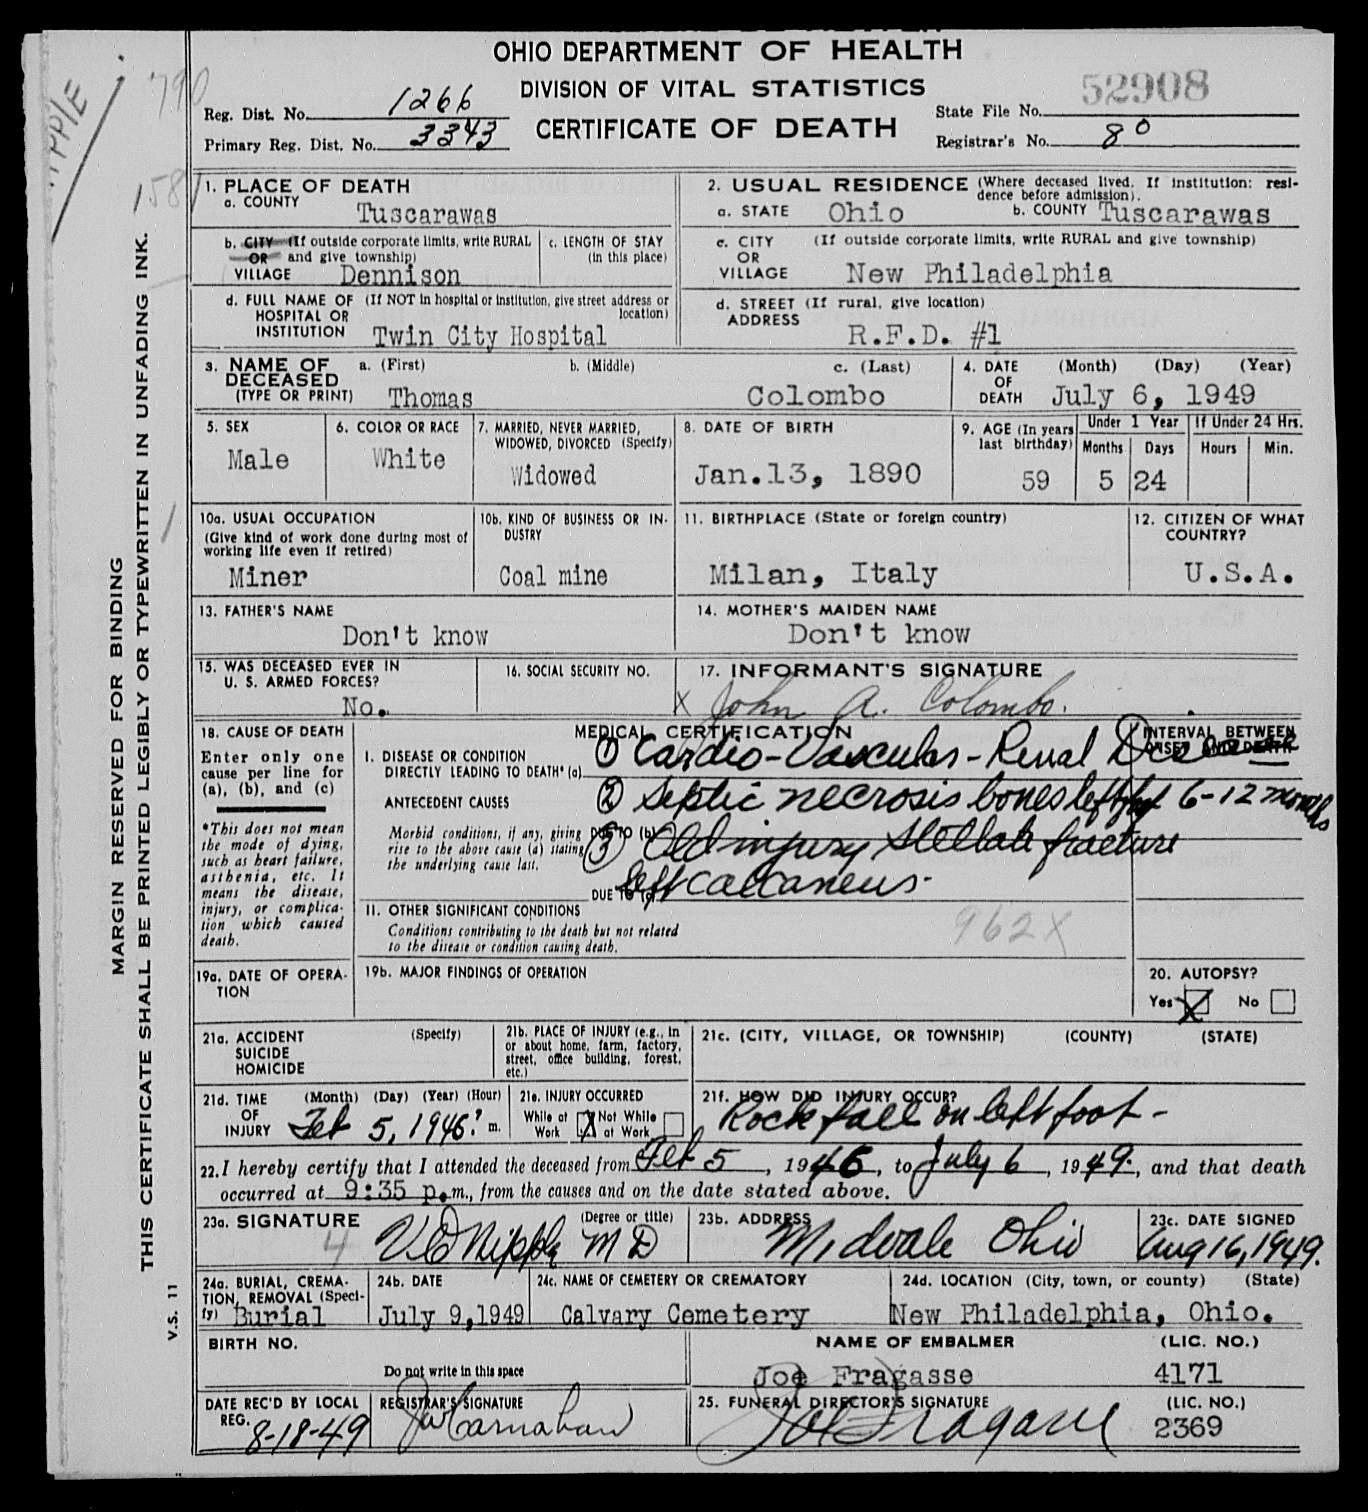 OHIO DEPARTMENT OF HEALTH
DIVISION OF VITAL STATISTICS
CERTIFICATE OF DEATH
790
Reg. Dist. No. 1266
Primary Reg. Dist. No. 3343
52908
State File No.
Registrar's No. 80
158
MARGIN RESERVED FOR BINDING
THIS CERTIFICATE SHALL BE PRINTED LEGIBLY OR TYPEWRITTEN IN UNFADING INK.
V.S. 11
1. PLACE OF DEATH
a. COUNTY Tuscarawas
b. CITY (If outside corporate limits, write RURAL
OR and give township)
VILLAGE Dennison
c. LENGTH OF STAY
(in this place)
d. FULL NAME OF (If NOT in hospital or institution, give street address or
HOSPITAL OR location)
INSTITUTION Twin City Hospital
2. USUAL RESIDENCE (Where deceased lived. If institution: resi-
dence before admission).
a. STATE Ohio b. COUNTY Tuscarawas
c. CITY (If outside corporate limits, write RURAL and give township)
OR
VILLAGE New Philadelphia
d. STREET (If rural, give location)
ADDRESS R.F.D. #1
3. NAME OF a. (First) b. (Middle) c. (Last)
DECEASED
(TYPE OR PRINT) Thomas Colombo
4. DATE (Month) (Day) (Year)
OF
DEATH July 6, 1949
5. SEX
Male
6. COLOR OR RACE
White
7. MARRIED, NEVER MARRIED,
WIDOWED, DIVORCED (Specify)
Widowed
8. DATE OF BIRTH
Jan.13, 1890
9. AGE (In years
last birthday)
59
Under 1 Year
Months Days
5 24
If Under 24 Hrs.
Hours Min.
10a. USUAL OCCUPATION
(Give kind of work done during most of
working life even if retired)
Miner
10b. KIND OF BUSINESS OR IN-
DUSTRY
Coal mine
11. BIRTHPLACE (State or foreign country)
Milan, Italy
12. CITIZEN OF WHAT
COUNTRY?
U.S.A.
13. FATHER'S NAME
Don't know
14. MOTHER'S MAIDEN NAME
Don't know
15. WAS DECEASED EVER IN
U. S. ARMED FORCES?
No.
16. SOCIAL SECURITY NO.
17. INFORMANT'S SIGNATURE
X John A. Colombo.
18. CAUSE OF DEATH
Enter only one
cause per line for
(a), (b), and (c)
*This does not mean
the mode of dying,
such as heart failure,
asthenia, etc. It
means the disease,
injury, or complica-
tion which caused
death.
MEDICAL CERTIFICATION
INTERVAL BETWEEN
ONSET AND DEATH
I. DISEASE OR CONDITION
DIRECTLY LEADING TO DEATH* (a) (1) Cardio-Vascular-Renal Disease
ANTECEDENT CAUSES (2) Septic necrosis bones left foot 6-12 months
Morbid conditions, if any, giving
rise to the above cause (a) stating
the underlying cause last.
DUE TO (b) (3) Old injury Stellate fracture
DUE TO (c) left calcaneus.
II. OTHER SIGNIFICANT CONDITIONS
Conditions contributing to the death but not related
to the disease or condition causing death.
962X
19a. DATE OF OPERA-
TION
19b. MAJOR FINDINGS OF OPERATION
20. AUTOPSY?
Yes X No
21a. ACCIDENT (Specify)
SUICIDE
HOMICIDE
21b. PLACE OF INJURY (e.g., in
or about home, farm, factory,
street, office building, forest,
etc.)
21c. (CITY, VILLAGE, OR TOWNSHIP) (COUNTY) (STATE)
21d. TIME (Month) (Day) (Year) (Hour)
OF
INJURY Feb 5, 1946 ? m.
21e. INJURY OCCURRED
While at Work X Not While at Work
21f. HOW DID INJURY OCCUR?
Rock fall on left foot -
22. I hereby certify that I attended the deceased from Feb 5, 1946, to July 6, 1949, and that death
occurred at 9:35 p.m., from the causes and on the date stated above.
23a. SIGNATURE (Degree or title)
4 MD
23b. ADDRESS
Midvale Ohio
23c. DATE SIGNED
Aug 16, 1949.
24a. BURIAL, CREMA-
TION, REMOVAL (Speci-
fy) Burial
24b. DATE
July 9,1949
24c. NAME OF CEMETERY OR CREMATORY
Calvary Cemetery
24d. LOCATION (City, town, or county) (State)
New Philadelphia, Ohio.
BIRTH NO.
Do not write in this space
NAME OF EMBALMER (LIC. NO.)
Joe Fragasse 4171
DATE REC'D BY LOCAL
REG. 8-18-49
REGISTRAR'S SIGNATURE
Carnahan
25. FUNERAL DIRECTOR'S SIGNATURE (LIC. NO.)
Joe Fragasse 2369